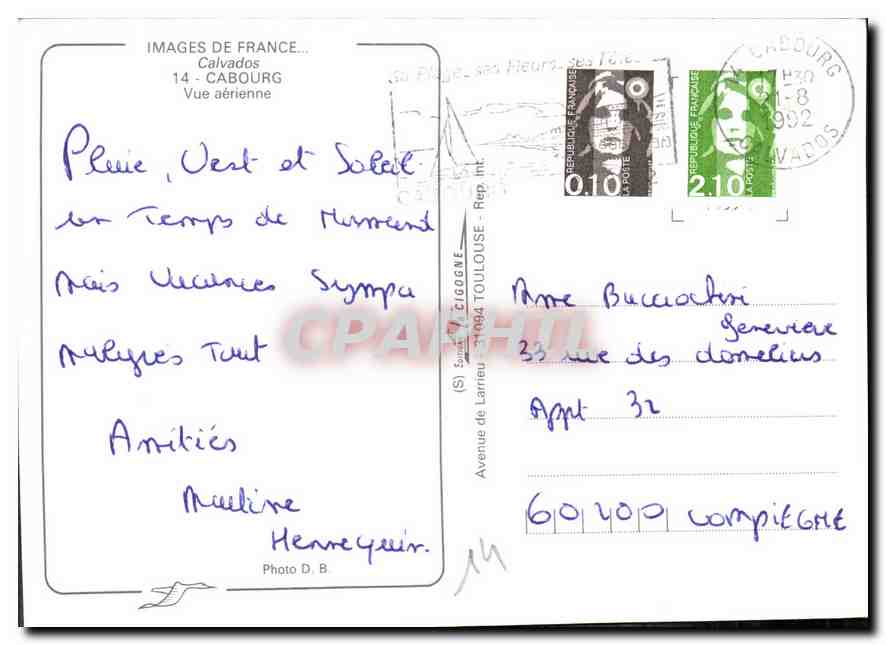 IMAGES DE FRANCE...
Calvados
14 - CABOURG
Vue aérienne
Pluie, Vent et Soleil
un Temps de Normand
mais Vacances Sympa
malgrés Tout
Amitiés
Martine
Hennequin.
Photo D. B.
(S) Editions CIGOGNE
Avenue de Larrieu - 31094 TOULOUSE - Rep. Int.
sa Plage_ ses Fleurs_ ses Fêtes
REPUBLIQUE FRANÇAISE
0,10
LA POSTE
REPUBLIQUE FRANÇAISE
2,10
LA POSTE
14 CABOURG
1-8
1992
CALVADOS
Mme
Geneviève
33 rue des
Appt 32
60200 COMPIEGNE
14
CPARAMA